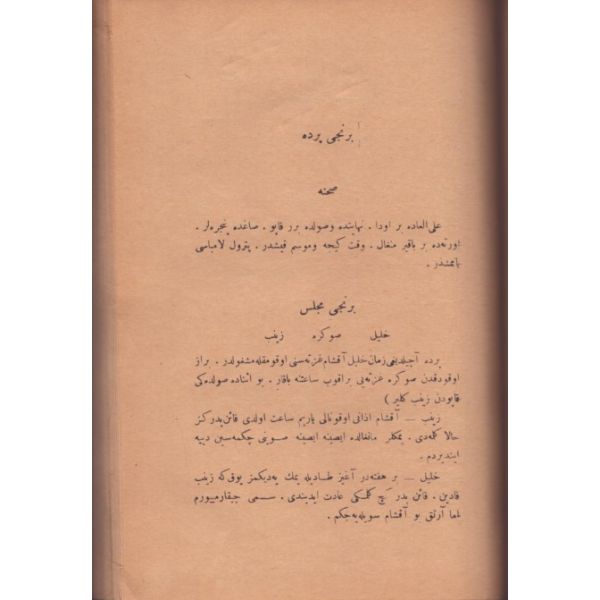 برنجی پرده
صحنه
علی العاده بر اودا . نهایتنده وصولده برر قاپو . صاغده پنجره‌لر .
اورته‌ده بر باقیر منغال . وقت کیجه وموسم قیشدر . پترول لامباسی
یانمشدر .
برنجی مجلس
خلیل صوکره زینب
پرده آچیلدیغی زمان خلیل آقشام غزته‌سنی اوقومقله مشغولدر . براز
اوقودقدن صوکره غزته‌یی براقوب ساعتنه باقار . بو اثناده صولده‌کی
قاپودن زینب کلیر )
زینب — آقشام اذانی اوقونالی یاریم ساعت اولدی قائن پدرکز
حالا کلمه‌دی . یمکلر مانغالده ایصینه ایصینه صوینی چکمه‌سین دییه
ایندیردم .
خلیل — بر هفته‌در آغیز طادیله یمك یه‌دیکمز یوق که زینب
قادین . قائن پدر کچ کلمکی عادت ایدیندی . سسمی چیقارمیورم
اما آرتق بو آقشام سویله‌یه‌جکم .